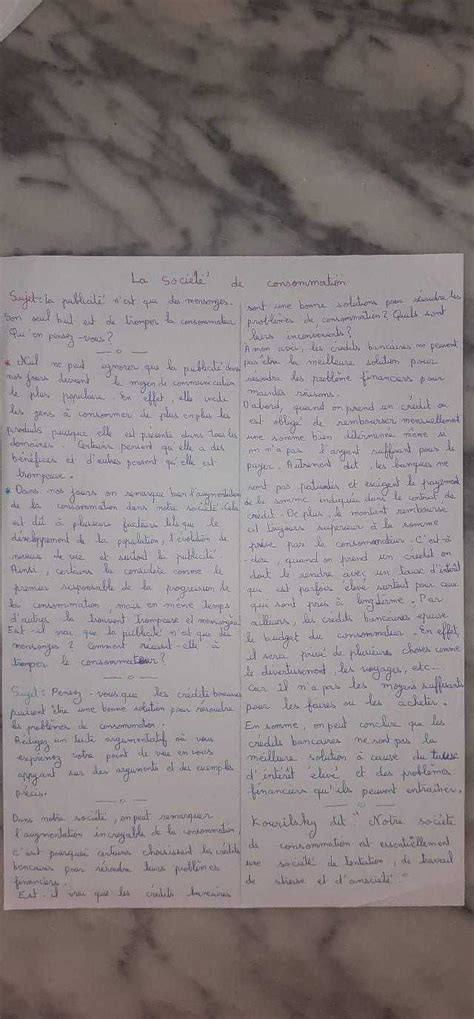 La Société de consommation
Sujet: La publicité n'est que des mensonges.
Son seul but est de tromper le consommateur
Qu'en pensez-vous?
Nul ne peut ignorer que la publicité dans
nos jours devient le moyen de communication
le plus populaire. En effet, elle incite
les gens à consommer de plus en plus les
produits puisque elle est présente dans tous les
domaines. Certains pensent qu'elle a des
bénéfices et d'autres pensent qu'elle est
trompeuse.
Dans nos jours on remarque bien l'augmentation
de la consommation dans notre société. Cela
est dû à plusieurs facteurs tels que le
développement de la population, l'évolution de
niveau de vie et surtout la publicité.
Ainsi, certains la considère comme le
premier responsable de la progression de
la consommation, mais en même temps
d'autres la trouvent trompeuse et mensongère
Est-il vrai que la publicité n'est que des
mensonges? Comment réussit-elle à
tromper le consommateur?
Sujet: Pensez-vous que les crédits bancaires
peuvent être une bonne solution pour résoudre
les problèmes de consommation.
Rédigez un texte argumentatif où vous
exprimez votre point de vue en vous
appuyant sur des arguments et des exemples
précis.
Dans notre société, on peut remarquer
l'augmentation incroyable de la consommation
c'est pourquoi certains choisissent les crédits
bancaires pour résoudre leurs problèmes
financiers.
Est-il vrai que les crédits bancaires
sont une bonne solutions pour résoudre les
problèmes de consommation? Quels sont
leurs inconvénients?
A mon avis, les crédits bancaires ne peuvent
pas être la meilleure solution pour
résoudre les problème financiers pour
maintes raisons.
D'abord, quand on prend un crédit on
est obligé de rembourser mensuellement
une somme bien déterminée même si
on n'a pas l'argent suffisant pour le
payer. Autrement dit, les banques ne
sont pas patientes et exigent le payement
de la somme indiquée dans le contrat de
crédit. De plus, le montant remboursé
est toujours supérieur à la somme
prise par le consommateur. C'est-à
dire, quand on prend un crédit on
doit le rendre avec un taux d'intérêt
qui est parfois élevé surtout pour ceux
qui sont pris à longterme. Par
ailleurs, les crédits bancaires épuise
le budget du consommateur. En effet,
il sera privé de plusieurs choses comme
le divertissement, les voyages, etc...
Car il n'a pas les moyens suffisants
pour les faires ou les acheter.
En somme, on peut conclure que les
crédits bancaires ne sont pas la
meilleure solution à cause du
d'intérêt élevé et des problèmes
financiers qu'ils peuvent entraîner.
Kourilsky dit " Notre société
de consommation est essentiellement
une société de tentation, de travail
de stresse et d'anxieté."